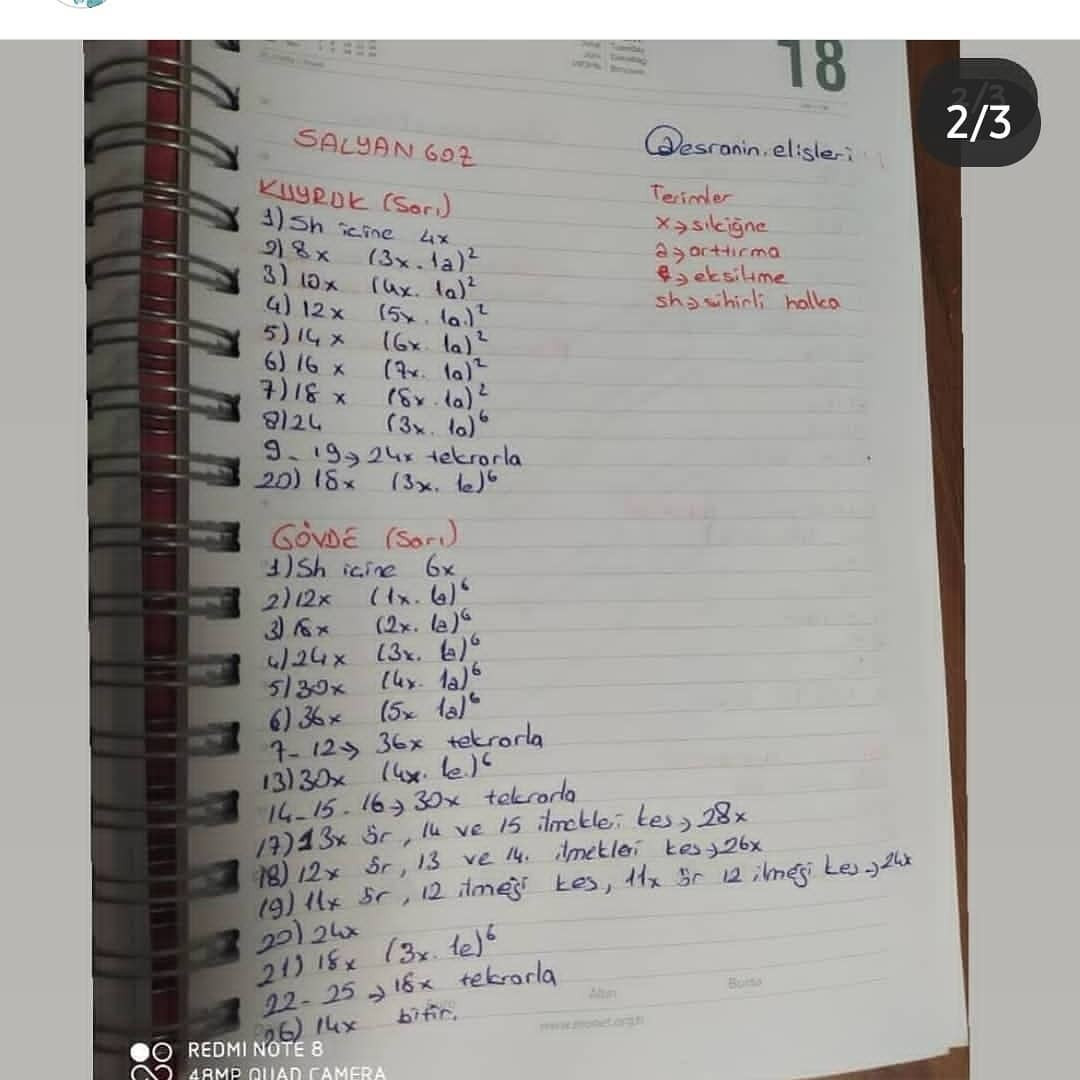 18
2/3
SALYANGOZ
@esranin.elisleri
KUYRUK (Sarı)
1) Sh icine 4x
2) 8x (3x. 1a)²
3) 10x (4x. 1a)²
4) 12x (5x. 1a.)²
5) 14x (6x. 1a)²
6) 16 x (7x. 1a)²
7) 18 x (8x. 1a)²
8) 24 (3x. 1a)⁶
9 - 19 → 24x tekrarla
20) 18x (3x. 1e)⁶
Terimler
x → sıkiğne
a → arttırma
e → eksiltme
sh → sihirli halka
GÖVDE (Sarı)
1) Sh icine 6x
2) 12x (1x. 1a)⁶
3) 18x (2x. 1a)⁶
4) 24x (3x. 1a)⁶
5) 30x (4x. 1a)⁶
6) 36x (5x 1a)⁶
7- 12 → 36x tekrarla
13) 30x (4x. 1e.)⁶
14-15-16 → 30x tekrarla
17) 13x ör, 14 ve 15 ilmekleri kes → 28x
18) 12x ör, 13 ve 14. ilmekleri kes → 26x
19) 11x ör, 12 ilmeği kes, 11x ör 12 ilmeği kes → 24x
20) 24x
21) 18x (3x. 1e)⁶
22- 25 → 18x tekrarla
26) 14x bitir.
REDMI NOTE 8
48MP QUAD CAMERA